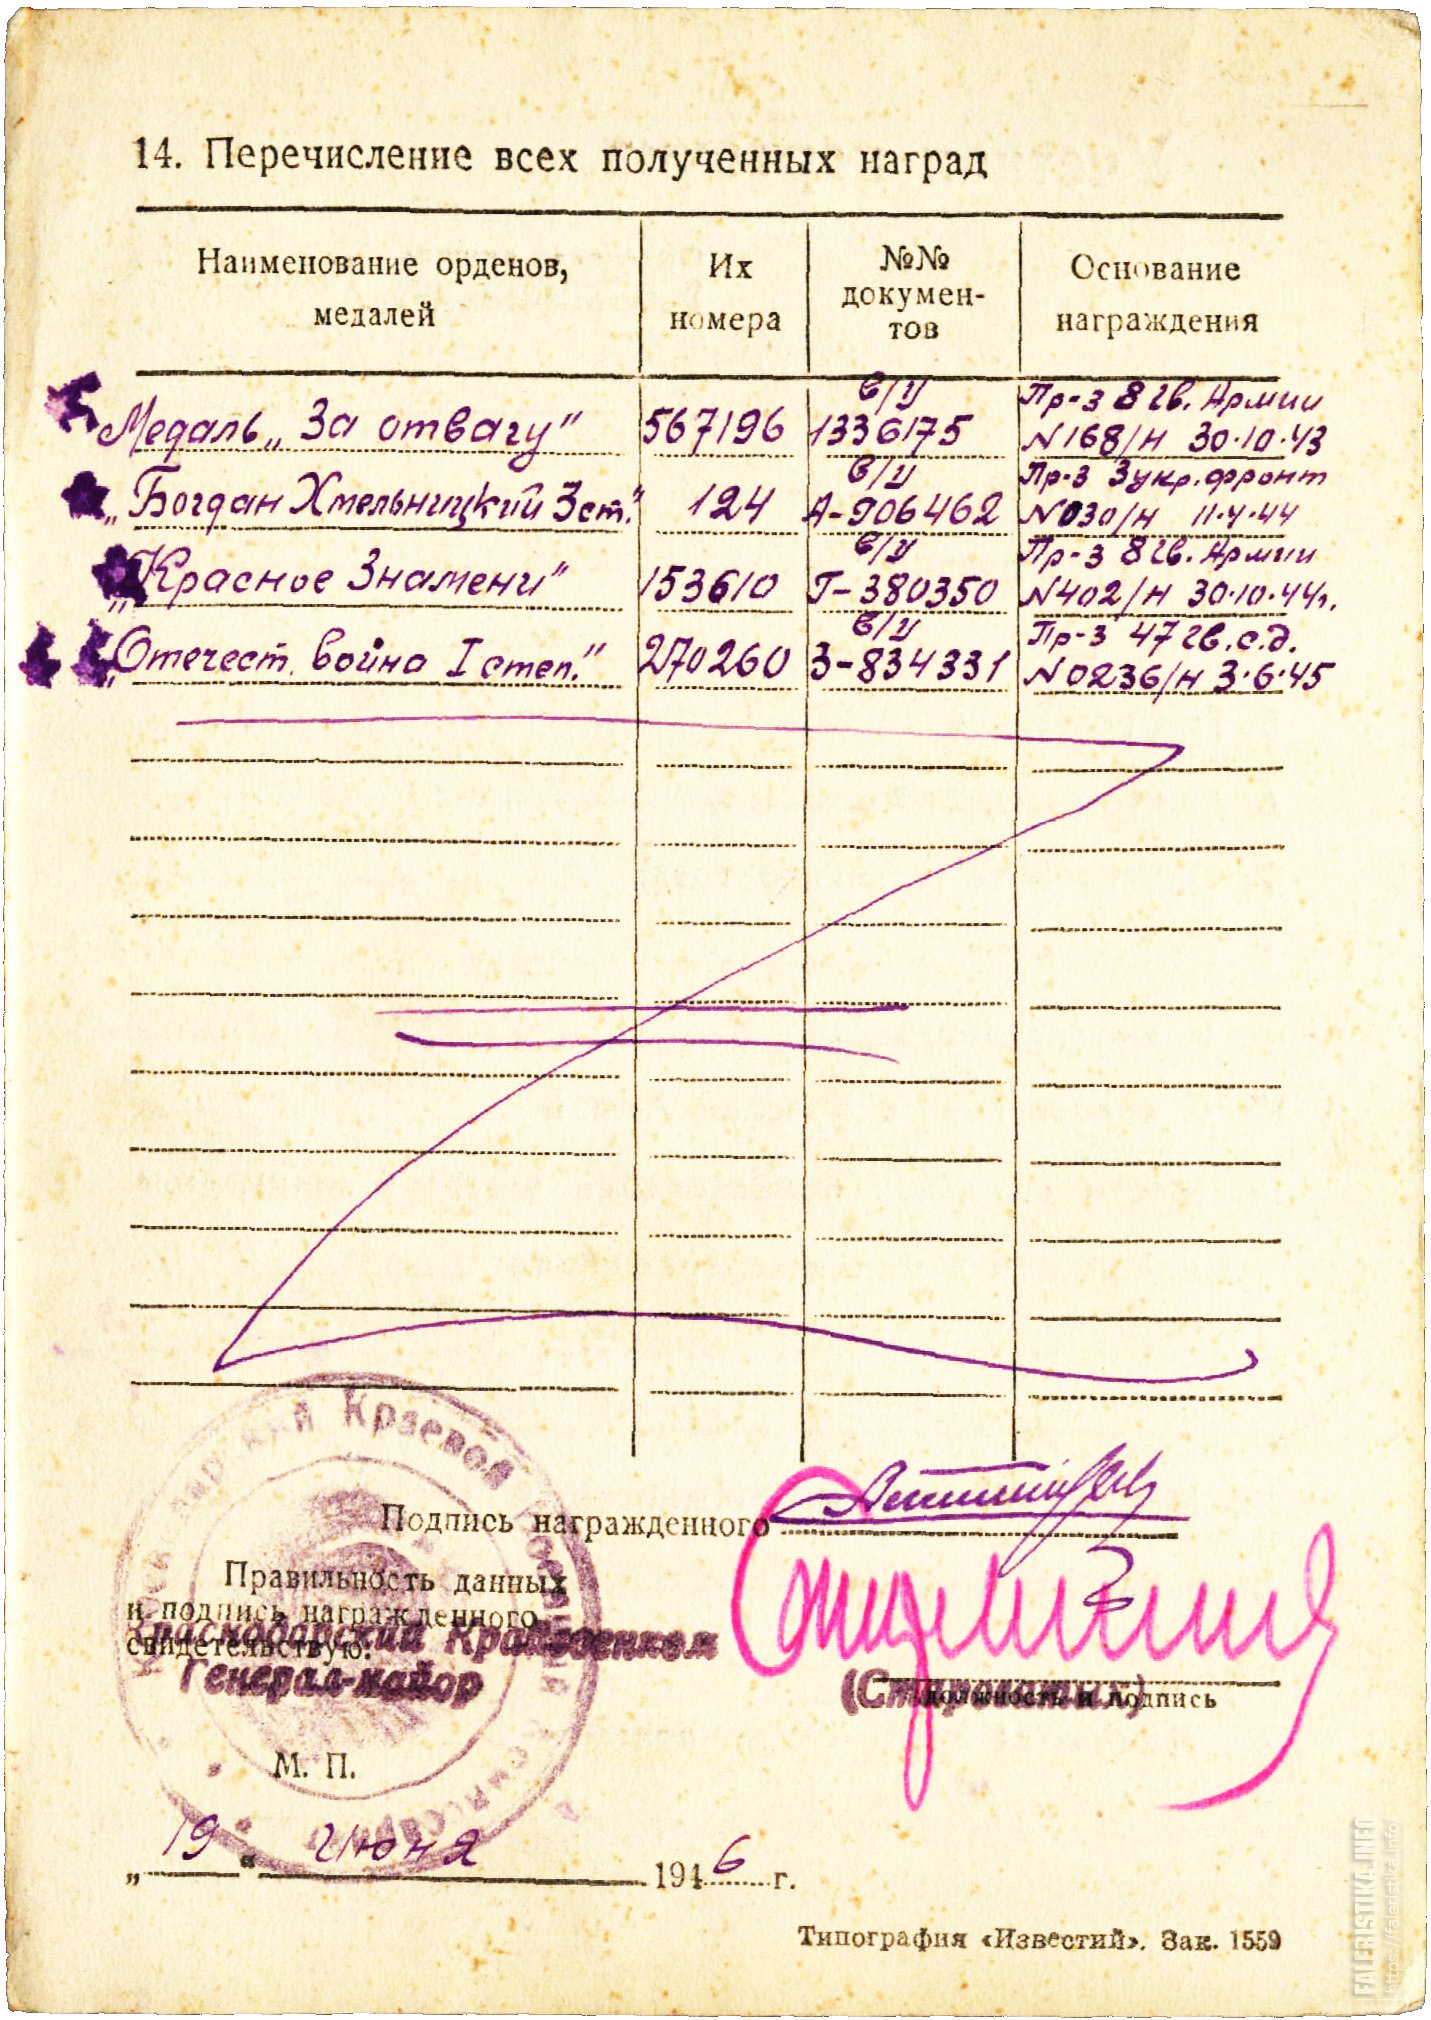 14. Перечисление всех полученных наград
Наименование орденов,
медалей
Их
номера
№№
докумен-
тов
Основание
награждения
Медаль „За отвагу" 567196 в/у 1336175 Пр-з 8 гв. Армии
N168/н 30.10.43
„Богдан Хмельницкий 3 ст." 124 в/у А-906462 Пр-з 3 укр. фронт
N030/н 11.4.44
„Красное Знамени" 153610 в/у Г-380350 Пр-з 8 гв. Армии
N402/н 30.10.44г.
„Отечест. война I степ." 270260 в/у З-834331 Пр-з 47 гв. с.д.
N0236/н 3.6.45
Подпись награжденного
Правильность данных
и подпись награжденного
свидетельствую:
Краснодарский Крайвоенком
Генерал-майор
должность и подпись
Краевой
М. П.
„19" июня 1946 г.
Типография «Известий». Зак. 1559
FALERISTIKA.INFO
https://faleristika.info